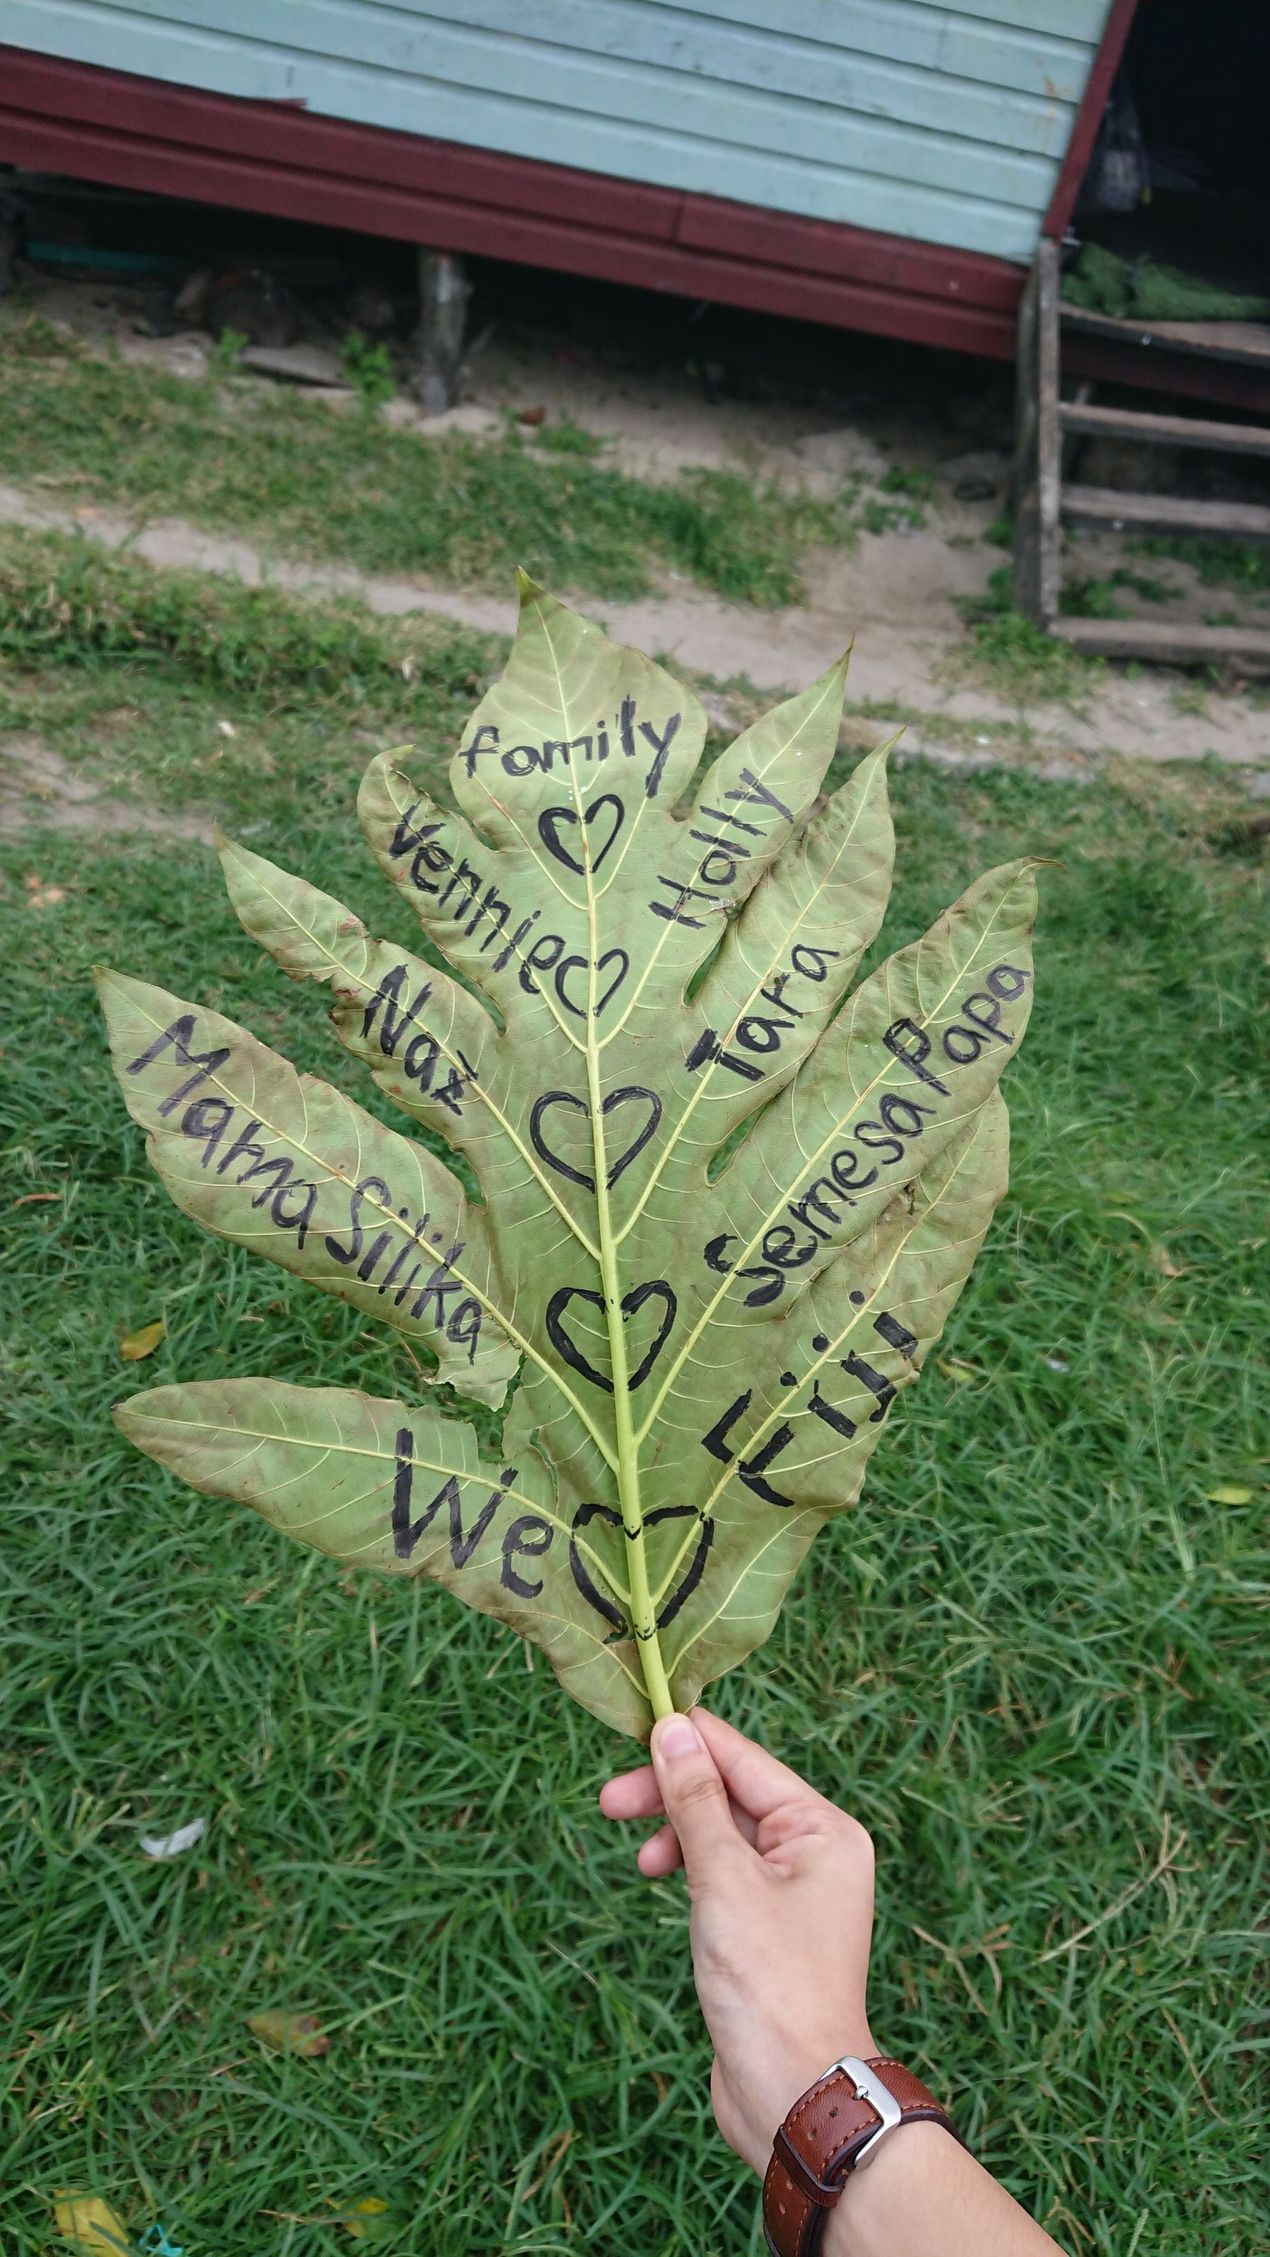 family
Vennie
Holly
Naz
Tara
Mama Silika
Semesa Papa
We
Fiji